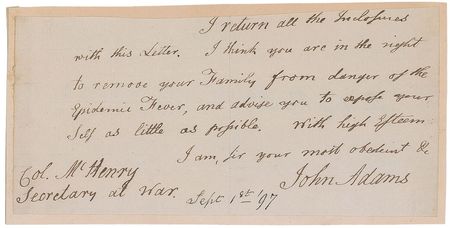 I return all the Inclosures
with this Letter. I think you are in the right
to remove your Family from danger of the
Epidemic Fever, and advise you to expose your
Self as little as possible. With high Esteem
I am, Sir your most obedient &c
John Adams
Col. McHenry
Secretary at War. Sept 1st '97